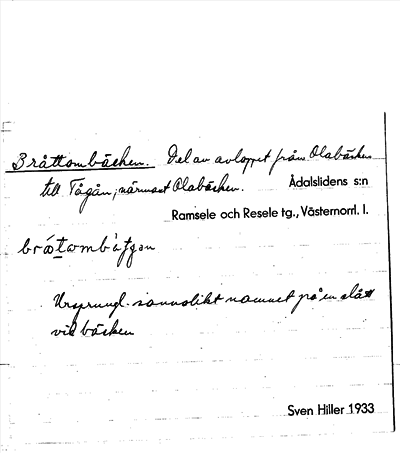 Bråttombäcken. Del av avloppet från Olabäcken
till Tågån, närmast Olabäcken. Ådalslidens s:n
Ramsele och Resele tg., Västernorrl. l.
Ursprungl. sannolikt namnet på en slått
vid bäcken
Sven Hiller 1933